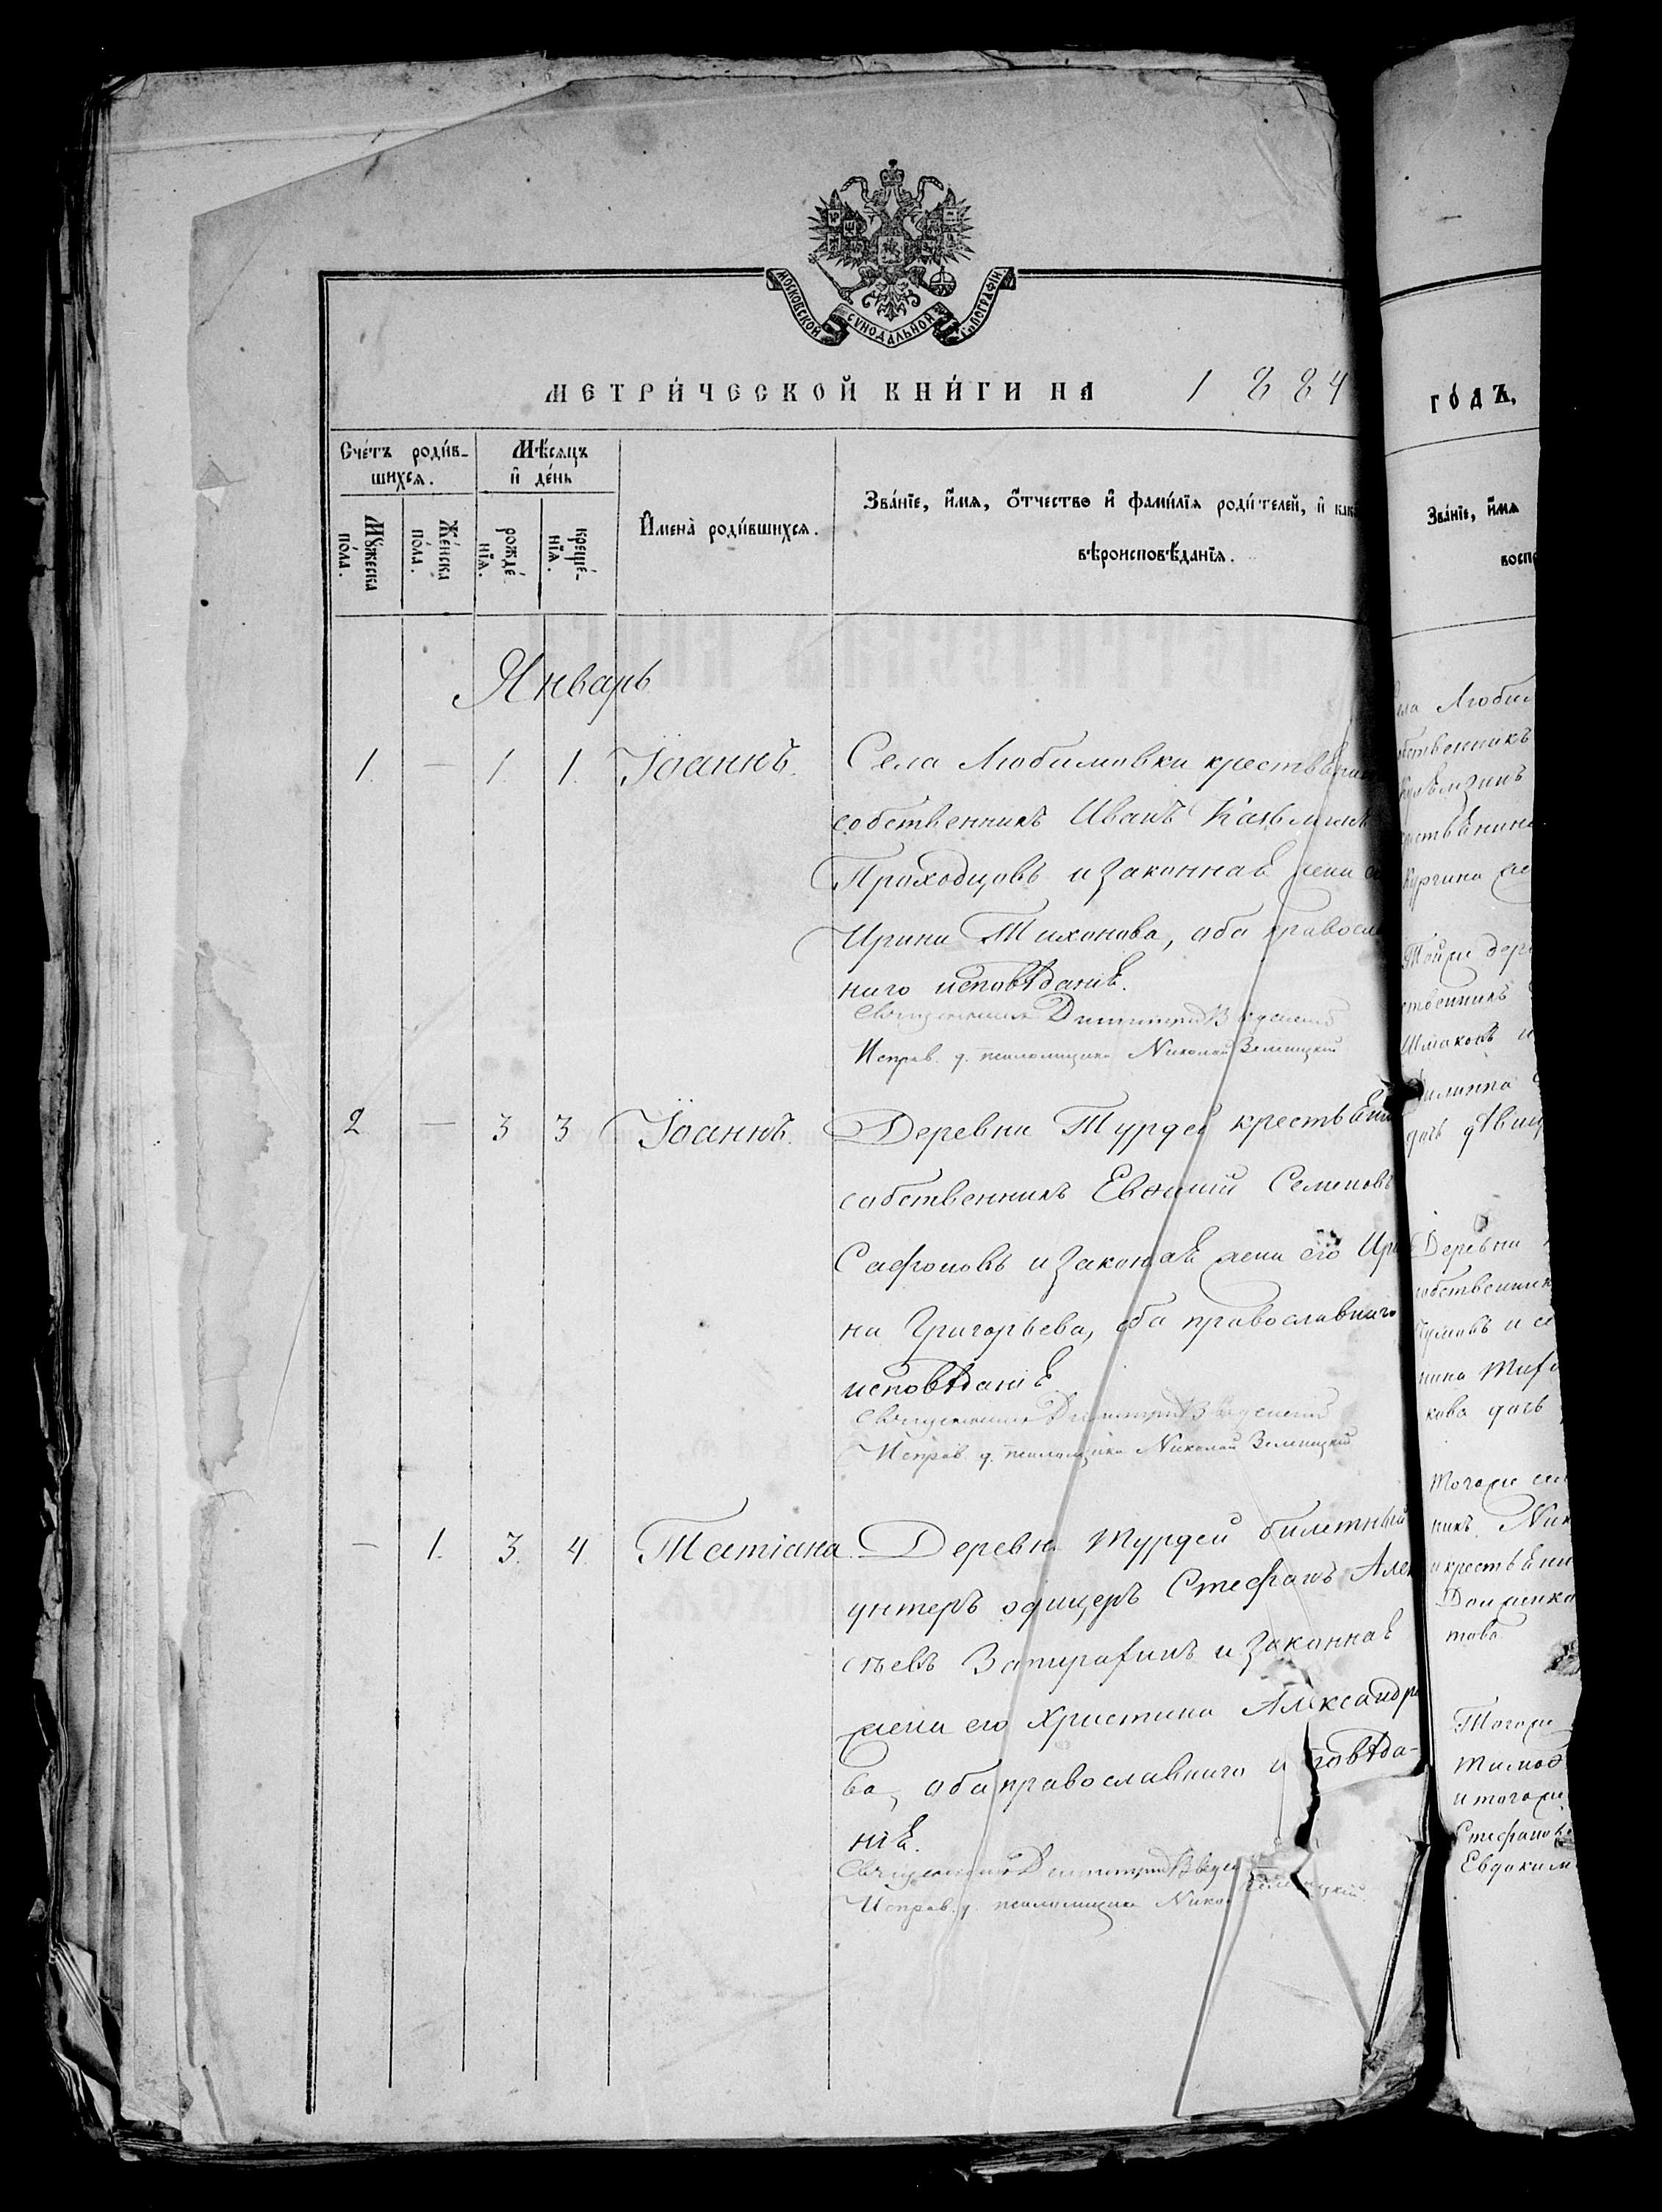 МОСКОВСКОЙ СѴНОДАЛЬНОЙ ТѴПОГРАФІИ.
МЕТРИ́ЧЕСКОЙ КНИ́ГИ НА 1884
Сче́тъ роди́в-
шихсѧ.
Мѣ́сѧцъ
и҆ де́нь
Мꙋ́жеска
по́ла.
Же́нска
по́ла.
рожде́
нїѧ.
креще́-
нїѧ.
И҆мена̀ роди́вшихсѧ.
Зва́нїе, и҆́мѧ, ѻ҆́тчество и҆ фами́лїѧ роди́телей, и҆
вѣроисповѣ́данїѧ.
Январь
1. — 1 1. Іоаннъ. Села Любимовки крестьянинъ
собственникъ Иванъ
Проходцовъ и законная жена
Ирина Тихонова, оба правосл
наго исповѣданія.
Священникъ Димитрій Введенскій
Исправ. д. псаломщика Николай Зеленецкій
2 — 3 3 Іоаннъ. Деревни Турдей крестьянинъ
собственникъ Евѳимій Семеновъ
Сафоновъ и законная жена его Ири
на Григорьева, оба православнаго
исповѣданія
Священникъ Димитрій Введенскій
Исправ. д. псаломщика Николай Зеленецкій
— 1. 3. 4. Татіана. Деревни Турдей билетный
унтеръ офицеръ Стефанъ Алек
сѣевъ и законная
жена его Христина Александро
ва, оба православнаго исповѣда-
нія.
Священникъ Димитрій Введе
Исправ. д. псаломщика Никол Зеленецкій.
го́дъ,
Зва́нїе, и҆́мѧ
ла Любим
бственникъ
Тойже дер
ственникъ
Шмаковъ и
дочь дѣвиц
Деревни
собственник
нина
кова дочь
Тогоже се
никъ Ник
и крестьяни
Тогоже
Тимоѳ
и тогоже
Стефанов
Евдоким